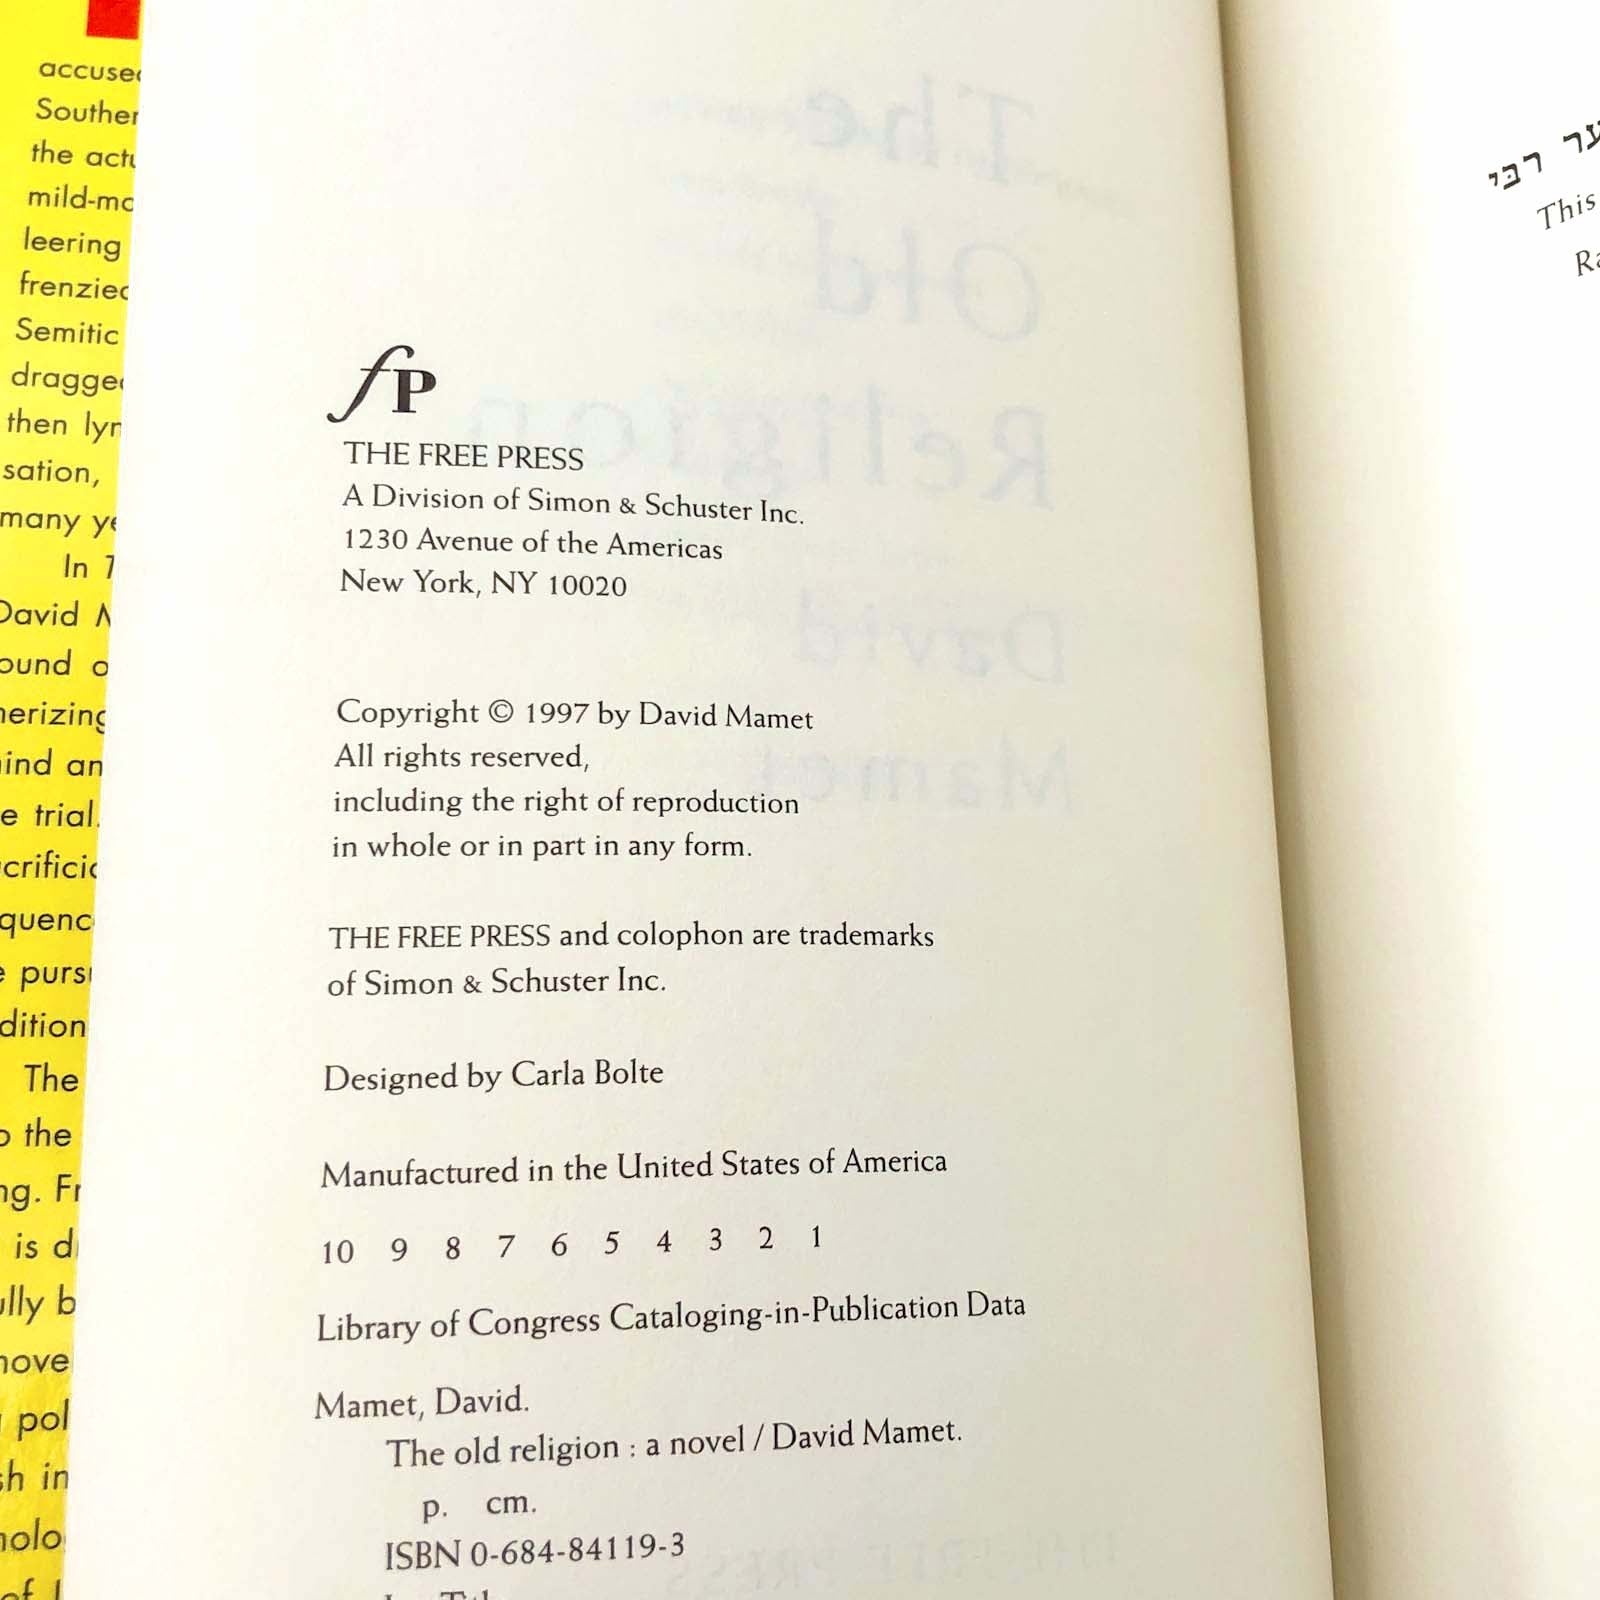 accused
Souther
the actu
mild-ma
leering
frenzied
Semitic
dragged
then lyn
sation,
many ye
In 1
David M
ound o
nerizing
ind an
e trial.
crificia
quenc
e pursu
dition
The
o the
ng. Fr
is d
ully b
nove
pol
sh in
nolo
of
fP
THE FREE PRESS
A Division of Simon & Schuster Inc.
1230 Avenue of the Americas
New York, NY 10020
Copyright © 1997 by David Mamet
All rights reserved,
including the right of reproduction
in whole or in part in any form.
THE FREE PRESS and colophon are trademarks
of Simon & Schuster Inc.
Designed by Carla Bolte
Manufactured in the United States of America
10 9 8 7 6 5 4 3 2 1
Library of Congress Cataloging-in-Publication Data
Mamet, David.
The old religion : a novel / David Mamet.
p. cm.
ISBN 0-684-84119-3
The
Old
Religion
David
Mamet
THE FREE PRESS
ער רבי
This
Ra